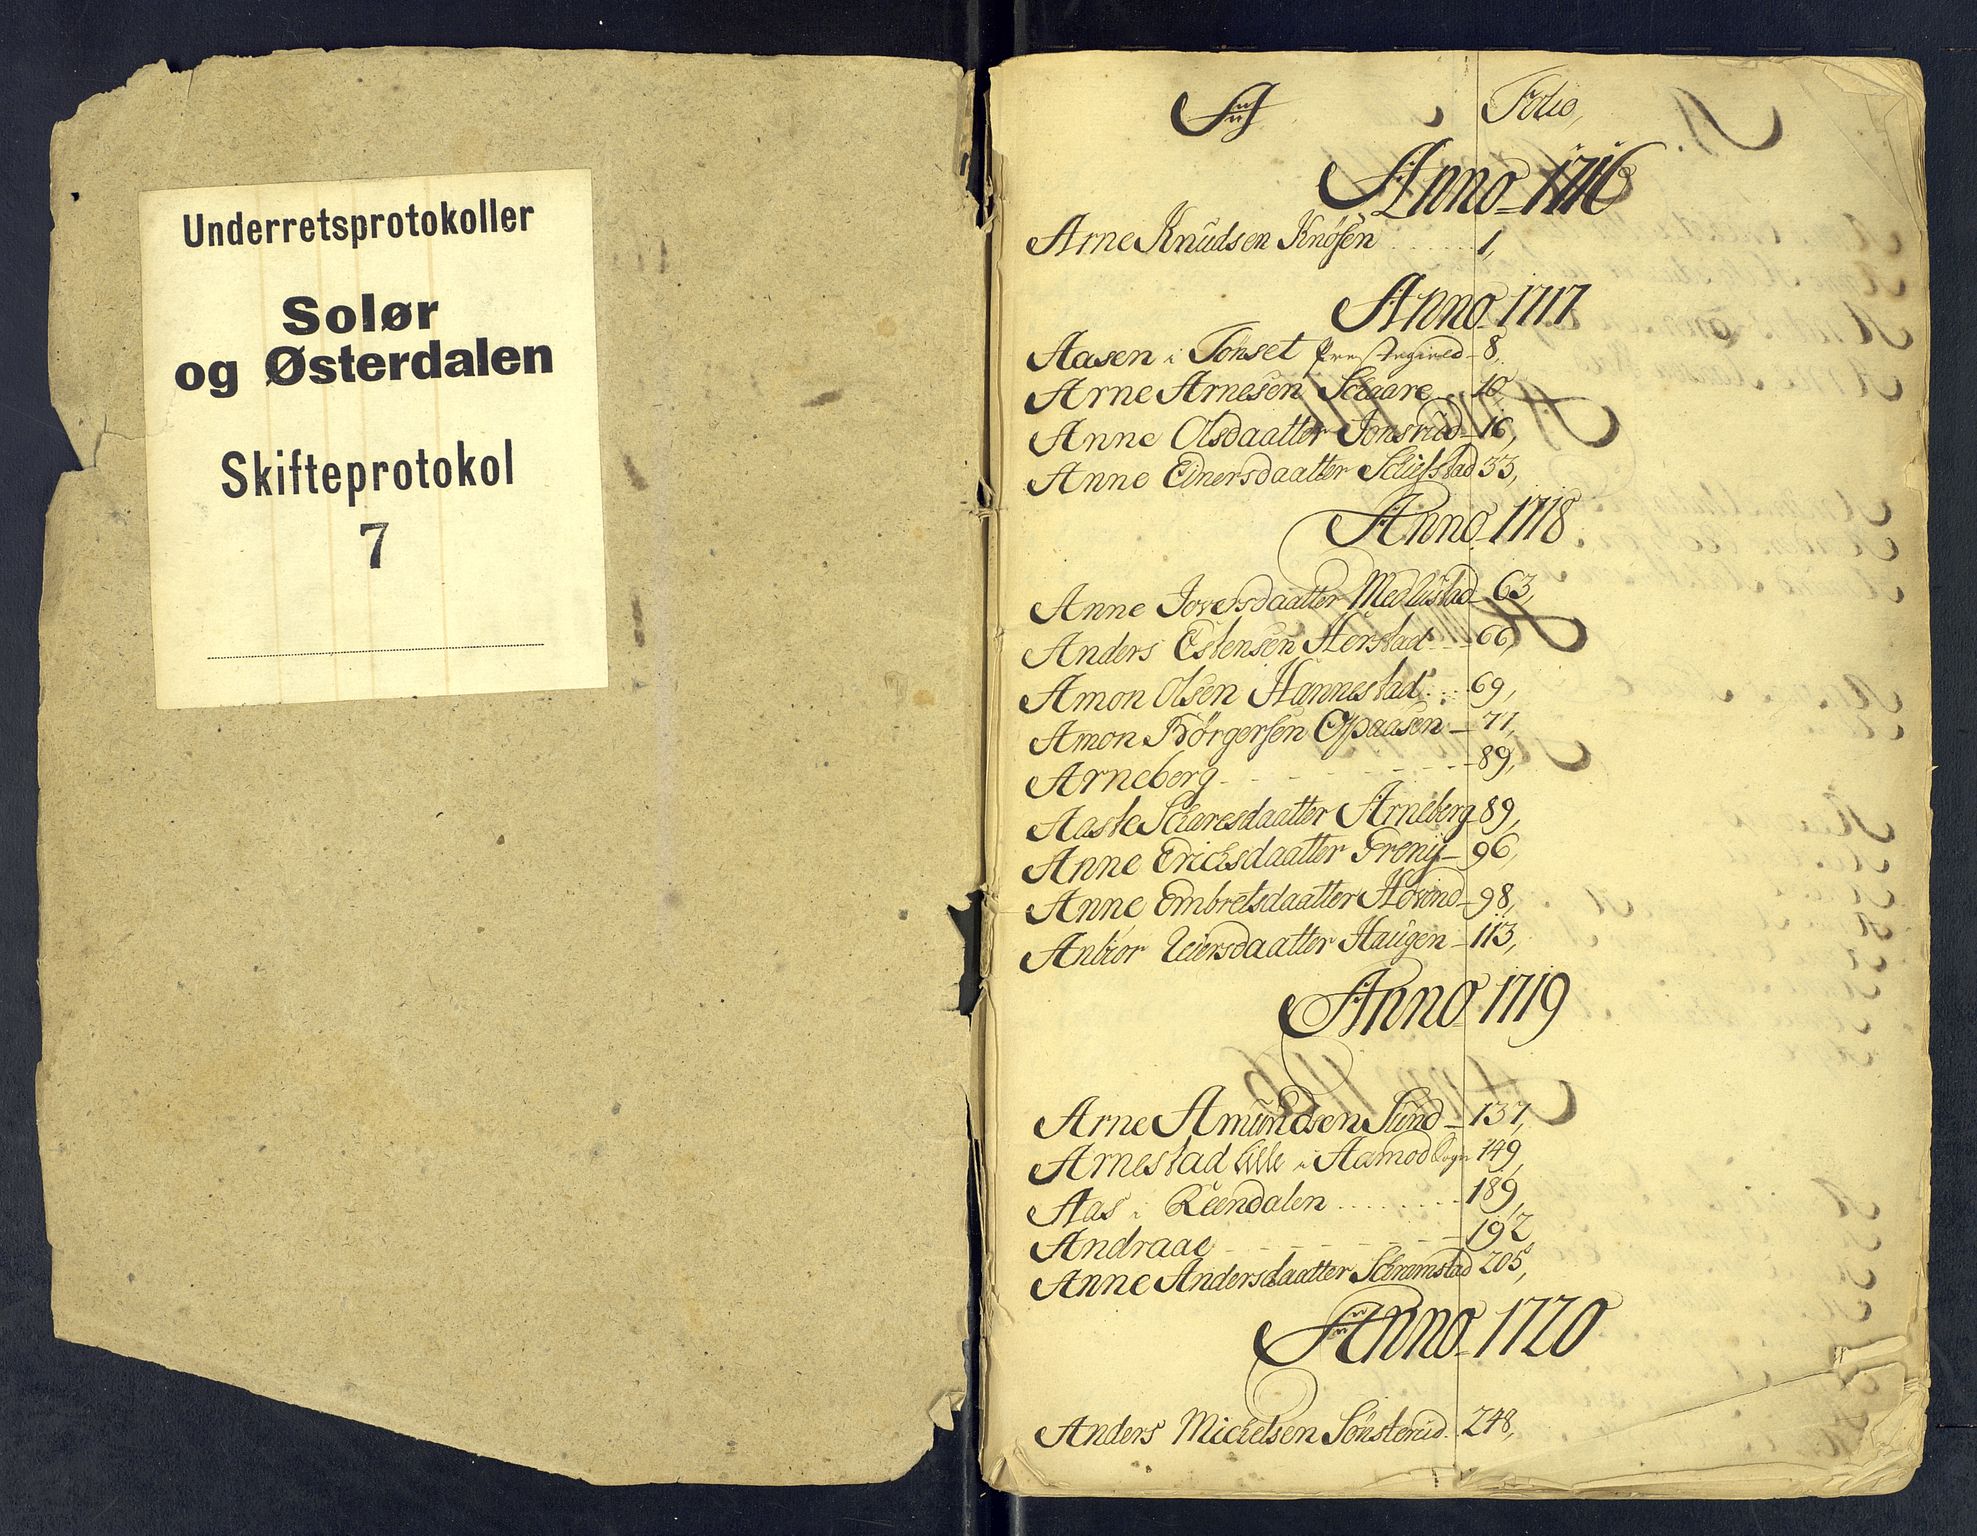 Underretsprotokoller
Solør
og Østerdalen
Skifteprotokol
7
A Folio,
Anno 1716
Arne Knudsen Knøsen 1,
Anno 1717
Aasen i Tønset Prestegield 8,
Arne Arnesen Schaare 10,
Anne Olsdaatter Jonsrud 16,
Anne Einersdaatter Schiefstad 33,
Anno 1718
Anne Joversdaatter Medlistad 63,
Anders Estensen Herstad 66,
Amon Olsen Hannestad 69,
Amon Børgersen Opaasen 71,
Arneberg 89,
Aaste Scharesdaatter Arneberg 89,
Anne Erichsdaatter Frenij 96,
Anne Embretsdaatter Hovind 98,
Anbior Eiersdaatter Haugen 113,
Anno 1719
Arne Amundsen Sund 137,
Arnestad lille i Aamod Sogn 149,
Aas i Reendalen 189,
Andraae 192
Anne Andersdaatter Schramstad 205,
Anno 1720
Anders Michelsen Sønsterud 248,